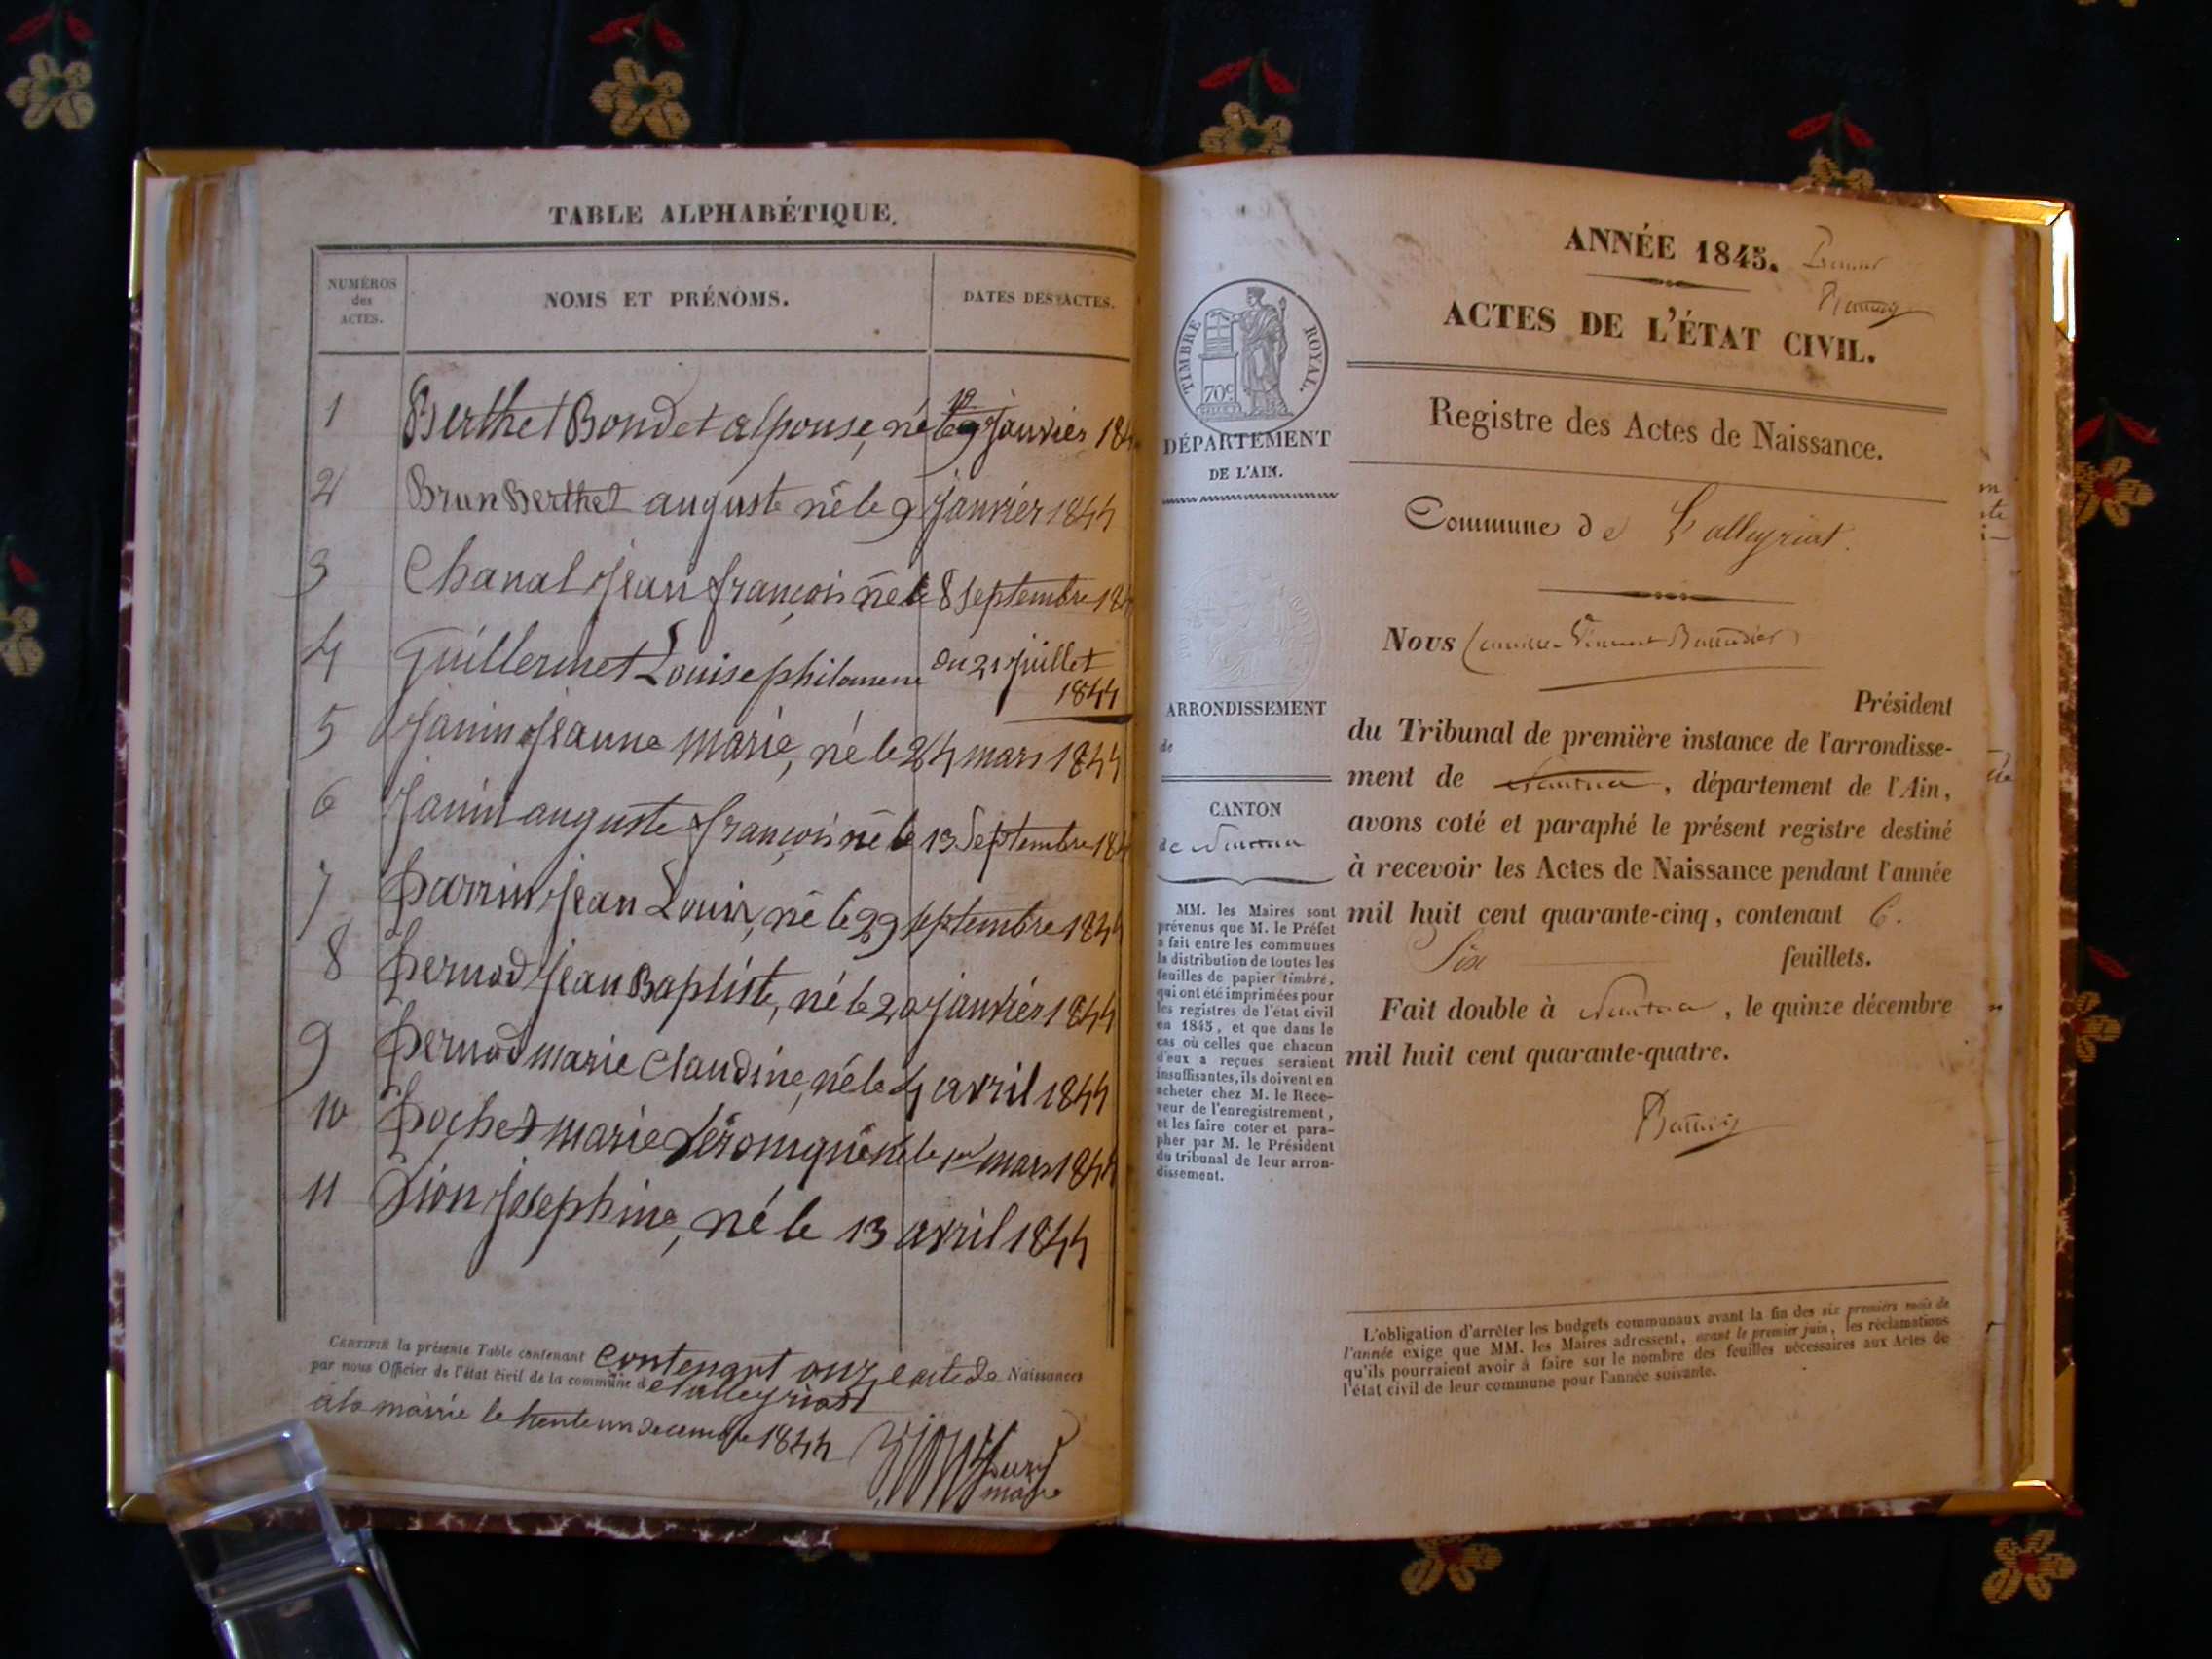 TABLE ALPHABÉTIQUE.
NUMÉROS
des
ACTES.
NOMS ET PRÉNOMS.
DATES DES ACTES.
1 Berthet Bondet alponse, né le 9 janvier 184
2 Brun Berthet auguste né le 9 janvier 1844
3 Chanal Jean françois né le 8 septembre 184
4 Guillermet Louise philomene du 21 juillet
1844
5 Janin Jeanne marie, né le 24 mars 1844
6 Janin auguste françois né le 13 Septembre 184
7 Parrin Jean Louis, né le 29 septembre 1844
8 Pernod Jean Baptiste, né le 20 janvier 1844
9 Pernod marie Claudine, né le 4 avril 1844
10 Pochet marie né le 1er mars 1844
11 Sion Josephine, né le 13 avril 1844
CERTIFIÉ la présente Table contenant contenant onze acte de Naissances
par nous Officier de l'état civil de la commune de Lalleyriat
à la mairie le trente un decembre 1844
maire
TIMBRE ROYAL.
70c
DÉPARTEMENT
DE L'AIN.
ARRONDISSEMENT
de
CANTON
de Nantua
MM. les Maires sont
prévenus que M. le Préfet
a fait entre les communes
la distribution de toutes les
feuilles de papier timbré,
qui ont été imprimées pour
les registres de l'état civil
en 1845, et que dans le
cas où celles que chacun
d'eux a reçues seraient
insuffisantes, ils doivent en
acheter chez M. le Rece-
veur de l'enregistrement,
et les faire coter et para-
pher par M. le Président
du tribunal de leur arron-
dissement.
ANNÉE 1845. Premier
ACTES DE L'ÉTAT CIVIL.
Registre des Actes de Naissance.
Commune de Lalleyriat.
Nous Camille Vincent
Président
du Tribunal de première instance de l'arrondisse-
ment de Nantua, département de l'Ain,
avons coté et paraphé le présent registre destiné
à recevoir les Actes de Naissance pendant l'année
mil huit cent quarante-cinq, contenant 6.
Six feuillets.
Fait double à Nantua, le quinze décembre
mil huit cent quarante-quatre.
L'obligation d'arrêter les budgets communaux avant la fin des six premiers mois de
l'année exige que MM. les Maires adressent, avant le premier juin, les réclamations
qu'ils pourraient avoir à faire sur le nombre des feuilles nécessaires aux Actes de
l'état civil de leur commune pour l'année suivante.